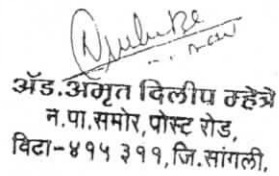 ॲड.अमृत दिलीप म्हेत्रे
न.पा.समोर,पोस्ट रोड,
विटा-४१५ ३११,जि.सांगली.